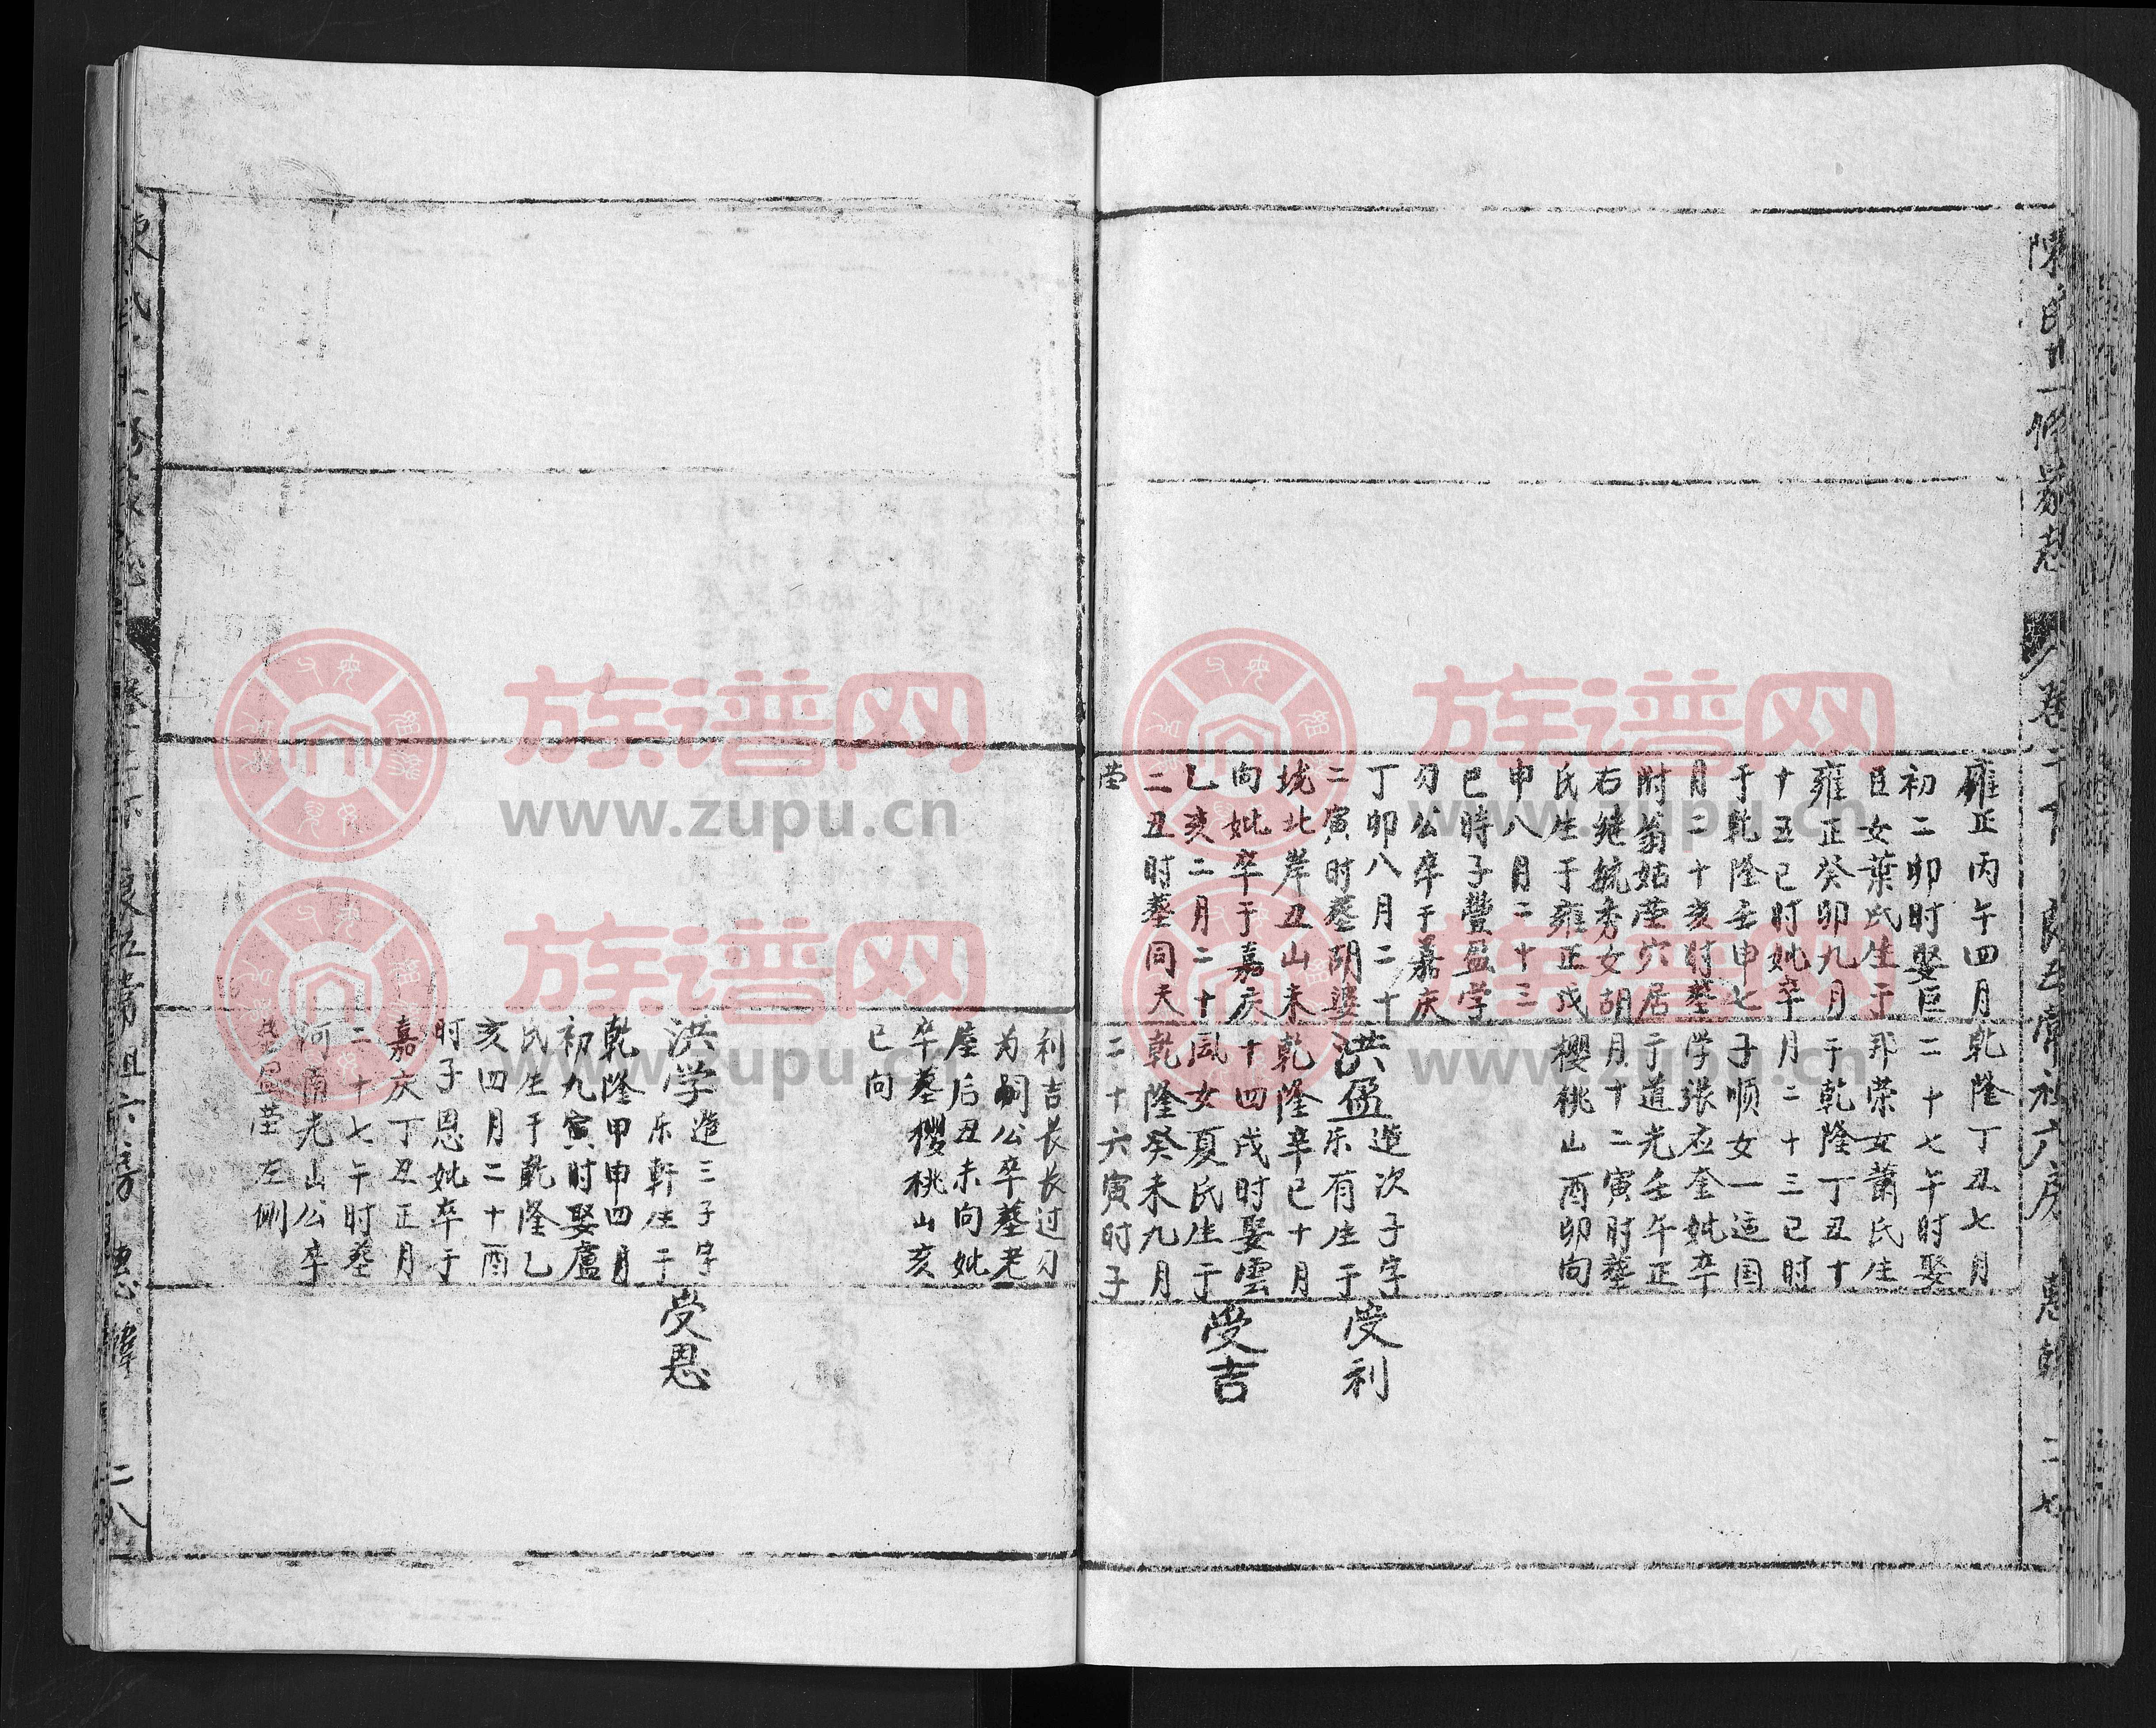 雍正丙午四月
初二卯时娶巨
臣女葉氏生于
雍正癸卯九月
十五巳时妣卒
于乾隆壬申七
月二十亥时塟
附翁姑茔穴居
右继毓秀女胡
氏生于雍正戊
申八月二十三
巳時子豐盈学
刃公卒于嘉庆
丁卯八月二十
二寅时塟阴婆
垅北岸丑山未
向妣卒于嘉庆
乙亥二月二十
二丑时塟同夫
茔
乾隆丁丑七月
二十七午时娶
邦荣女萧氏生
于乾隆丁丑十
月二十三巳时
子顺女一适国
学张应奎妣卒
于道光壬午正
月十二寅时塟
櫻桃山酉卯向
洪盈
造次子字
乐有生于
乾隆辛巳十月
十四戌时娶雲
凤女夏氏生于
乾隆癸未九月
二十六寅时子
受利
受吉
利吉長長过刃
为嗣公卒塟老
屋后丑未向妣
卒塟櫻桃山亥
巳向
洪学
造三子字
乐軒生于
乾隆甲申四月
初九寅时娶盧
氏生于乾隆乙
亥四月二十酉
时子恩妣卒于
嘉庆丁丑正月
二十七午时塟
河南老山公卒
塟盈茔左侧
受恩
二八
族谱网
www.zupu.cn
族谱网
www.zupu.cn
族谱网
www.zupu.cn
族谱网
www.zupu.cn